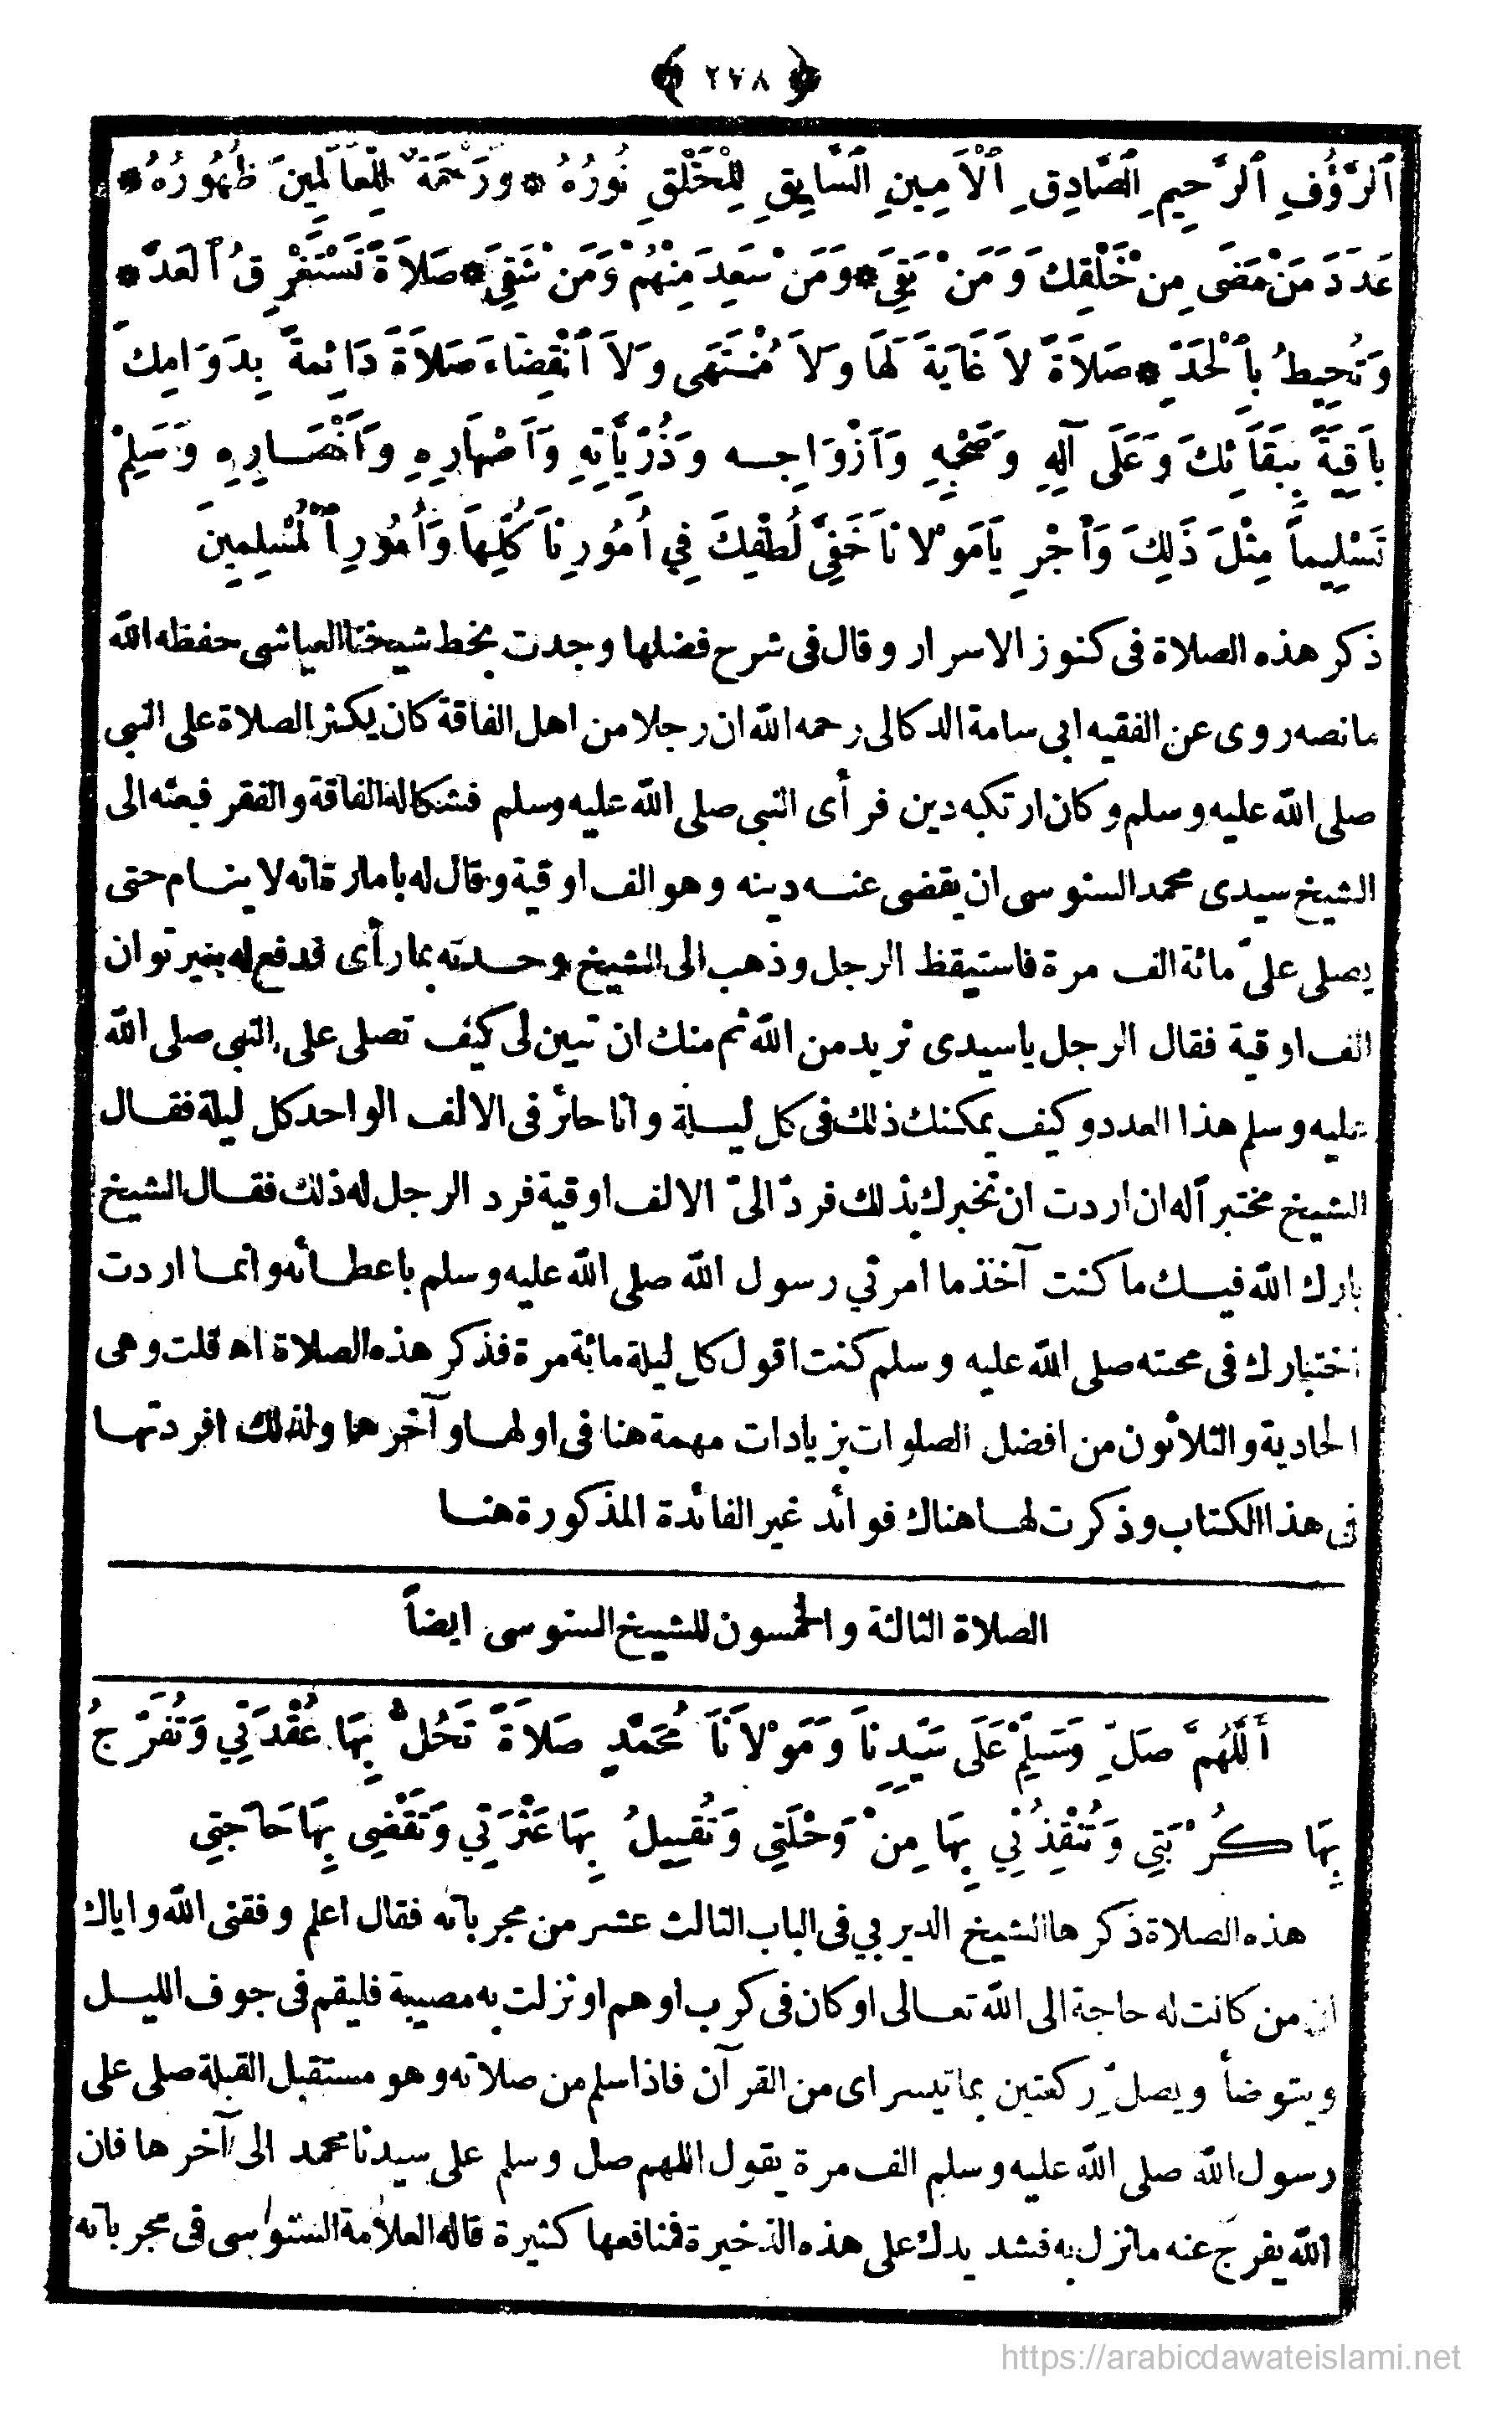 ﴿ ٢٧٨ ﴾
ٱلرَّؤُفِ ٱلرَّحِيمِ ٱلصَّادِقِ ٱلْأَمِينِ ٱلسَّابِقِ لِلْخَلْقِ نُورُهُ * وَرَحْمَةٌ لِلْعَالَمِينَ ظُهُورُهُ *
عَدَدَ مَنْ مَضَى مِنْ خَلْقِكَ وَمَنْ بَقِيَ * وَمَنْ سَعِدَ مِنْهُمْ وَمَنْ شَقِيَ * صَلَاةً تَسْتَغْرِقُ ٱلْعَدَّ *
وَتُحِيطُ بِٱلْحَدِّ * صَلَاةً لَا غَايَةَ لَهَا وَلَا مُنْتَهَى وَلَا ٱنْقِضَاءَ صَلَاةً دَائِمَةً بِدَوَامِكَ
بَاقِيَةً بِبَقَائِكَ وَعَلَى آلِهِ وَصَحْبِهِ وَأَزْوَاجِـــهِ وَذُرِّيَّاتِهِ وَأَصْهَارِهِ وَأَنْصَـارِهِ وَسَلِّمْ
تَسْلِيماً مِثْلَ ذَلِكَ وَأَجْرِ يَا مَوْلَانَا خَفِيَّ لُطْفِكَ فِي أُمُورِنَا كُلِّهَا وَأُمُورِ ٱلْمُسْلِمِينَ
ذكر هذه الصلاة فى كنوز الاسرار وقال فى شرح فضلها وجدت بخط شيخنا العياشى حفظه الله
مانصه روى عن الفقيه ابى سامة الدكالى رحمه الله ان رجلا من اهل الفاقة كان يكثر الصلاة على النبى
صلى الله عليه وسلم وكان ارتكبه دين فرأى النبى صلى الله عليه وسلم فشكا له الفاقة والفقر فبعثه الى
الشيخ سيدى محمد السنوسى ان يقضى عنــه دينه وهو الف اوقية وقال له بامارة انه لا ينــام حتى
يصلى علىّ مائة الف مرة فاستيقظ الرجل وذهب الى الشيخ وحــدثه بما رأى فدفع له بغير توان
الف اوقية فقال الرجل ياسيدى نريد من الله ثم منك ان تبين لى كيف تصلى على النبى صلى الله
عليه وسلم هذا العدد وكيف يمكنك ذلك فى كل ليــلة وانا حائر فى الالف الواحد كل ليلة فقــال
الشيخ مختبرا له ان اردت ان نخبرك بذلك فردّ الىّ الالف اوقية فرد الرجل له ذلك فقــال الشيخ
بارك الله فيــك ما كنت آخذ ما امرني رسول الله صلى الله عليه وسلم باعطــائه وانمــا اردت
اختبارك فى محبته صلى الله عليه وسلم كنت اقول كل ليلة مائة مرة فذكر هذه الصلاة اه قلت وهى
الحادية والثلاثون من افضل الصلوات بزيادات مهمة هنا فى اولهــا وآخرها ولذلك افردتهــا
فى هذا الكتاب وذكرت لهــا هناك فوائد غير الفائدة المذكورة هنــا
الصلاة الثالثة والخمسون للشيخ السنوسى ايضاً
أَللَّهُمَّ صَلِّ وَسَلِّمْ عَلَى سَيِّدِنَا وَمَوْلَانَا مُحَمَّدٍ صَلَاةً تَحُلُّ بِهَا عُقْدَتِي وَتُفَرِّجُ
بِهَا كُرْبَتِي وَتُنْقِذُنِي بِهَا مِنْ وَحْلَتِي وَتُقِيلُ بِهَا عَثْرَتِي وَتَقْضِى بِهَا حَاجَتِي
هذه الصلاة ذكرها الشيخ الديربي فى الباب الثالث عشر من مجرباته فقال اعلم وفقنى الله واياك
ان من كانت له حاجة الى الله تعــالى او كان فى كرب او هم او نزلت به مصيبة فليقم فى جوف الليــل
ويتوضأ ويصلّ ركعتين بما تيسر اى من القرآن فاذا سلم من صلاته وهو مستقبل القبلة صلى على
رسول الله صلى الله عليه وسلم الف مرة يقول اللهم صل وسلم على سيدنا محمد الى آخرها فان
الله يفرج عنه ما نزل به فشد يدك على هذه الذخيرة فمنافعها كثيرة قاله العلامة السنوسى فى مجرباته
https://arabicdawateislami.net